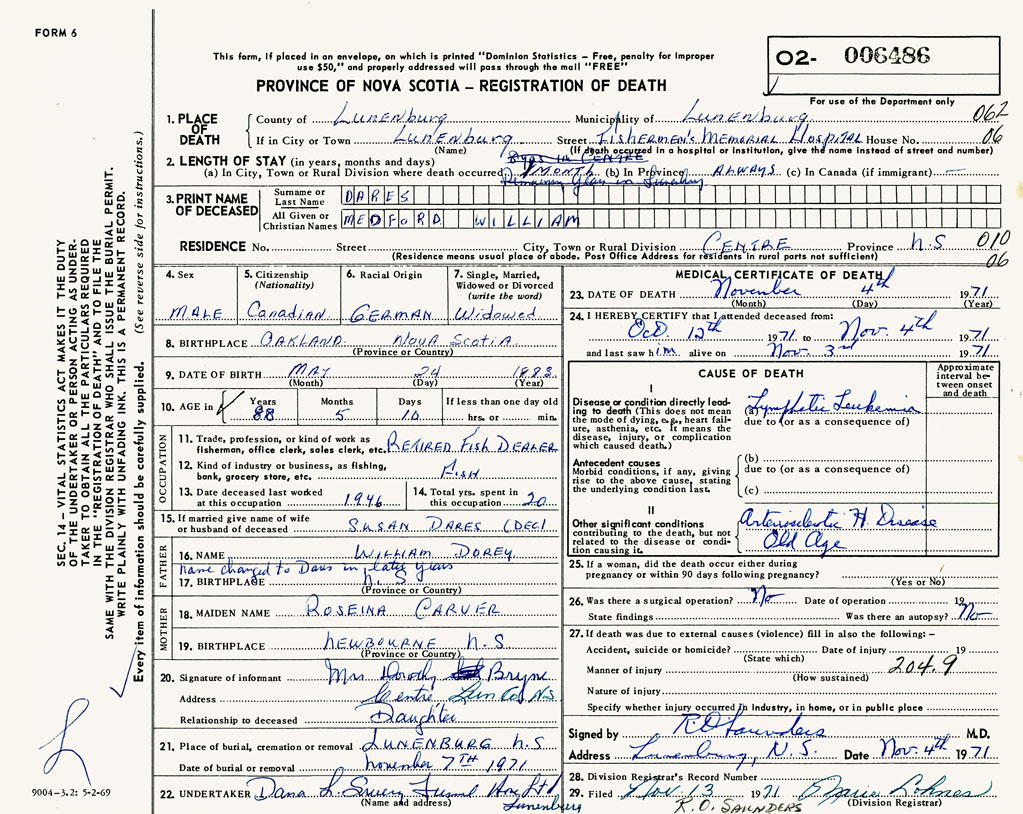 FORM 6
This form, if placed in an envelope, on which is printed "Dominion Statistics – Free, penalty for improper
use $50," and properly addressed will pass through the mail "FREE"
02- 006486
PROVINCE OF NOVA SCOTIA – REGISTRATION OF DEATH
For use of the Department only
1. PLACE OF DEATH County of Lunenburg Municipality of Lunenburg 062
If in City or Town Lunenburg Street Fishermen's Memorial Hospital House No. 06
(Name) (If death occurred in a hospital or institution, give the name instead of street and number)
2. LENGTH OF STAY (in years, months and days)
(a) In City, Town or Rural Division where death occurred 1 Month (b) In Province Always (c) In Canada (if immigrant) —
3. PRINT NAME OF DECEASED
Surname or Last Name DARES
All Given or Christian Names MEDFORD WILLIAM
RESIDENCE No. Street City, Town or Rural Division Centre Province N.S 010
(Residence means usual place of abode. Post Office Address for residents in rural parts not sufficient) 06
4. Sex MALE
5. Citizenship (Nationality) Canadian
6. Racial Origin GERMAN
7. Single, Married, Widowed or Divorced (write the word) Widowed
8. BIRTHPLACE OAKLAND NOVA SCOTIA
(Province or Country)
9. DATE OF BIRTH MAY 24 1883
(Month) (Day) (Year)
10. AGE in Years 88 Months 5 Days 10 If less than one day old hrs. or min.
OCCUPATION
11. Trade, profession, or kind of work as
fisherman, office clerk, sales clerk, etc. RETIRED FISH DEALER
12. Kind of industry or business, as fishing,
bank, grocery store, etc. FISH
13. Date deceased last worked at this occupation 1946
14. Total yrs. spent in this occupation 20
15. If married give name of wife
or husband of deceased SUSAN DARES (DEC)
FATHER
16. NAME WILLIAM DOREY
name changed to Dares in later years
17. BIRTHPLACE N. S
(Province or Country)
MOTHER
18. MAIDEN NAME ROSEINA CARVER
19. BIRTHPLACE NEWBOURNE N.S
(Province or Country)
20. Signature of informant Mrs Dorothy Bryne
Address Centre Lun Co. N.S.
Relationship to deceased Daughter
21. Place of burial, cremation or removal LUNENBURG N.S
Date of burial or removal November 7TH 1971
22. UNDERTAKER Dana L. Sweeny Funeral Home Ltd
(Name and address) Lunenburg
MEDICAL CERTIFICATE OF DEATH
23. DATE OF DEATH November 4th 1971
(Month) (Day) (Year)
24. I HEREBY CERTIFY that I attended deceased from:
Oct. 12th 1971 to Nov. 4th 1971
and last saw him alive on Nov. 3rd 1971
CAUSE OF DEATH
Approximate interval between onset and death
I
Disease or condition directly leading to death (This does not mean the mode of dying, e.g., heart failure, asthenia, etc. It means the disease, injury, or complication which caused death.)
(a) Lymphatic Leukemia
due to (or as a consequence of)
Antecedent causes
Morbid conditions, if any, giving rise to the above cause, stating the underlying condition last.
(b)
due to (or as a consequence of)
(c)
II
Other significant conditions contributing to the death, but not related to the disease or condition causing it.
Arteriosclerotic H. Disease
Old Age
25. If a woman, did the death occur either during
pregnancy or within 90 days following pregnancy?
(Yes or No)
26. Was there a surgical operation? No Date of operation 19
State findings Was there an autopsy? No
27. If death was due to external causes (violence) fill in also the following: –
Accident, suicide or homicide? Date of injury 19
(State which)
Manner of injury 204.9
(How sustained)
Nature of injury
Specify whether injury occurred in industry, in home, or in public place
Signed by R.O Saunders M.D.
Address Lunenburg, N.S. Date Nov. 4th 1971
28. Division Registrar's Record Number
29. Filed Nov 13 1971 Lohnes
R.O. SAUNDERS (Division Registrar)
SEC. 14 – VITAL STATISTICS ACT MAKES IT THE DUTY
OF THE UNDERTAKER OR PERSON ACTING AS UNDER-
TAKER TO OBTAIN ALL THE PARTICULARS REQUIRED
IN THE "REGISTRATION OF DEATH" AND TO FILE THE
SAME WITH THE DIVISION REGISTRAR WHO SHALL ISSUE THE BURIAL PERMIT.
WRITE PLAINLY WITH UNFADING INK. THIS IS A PERMANENT RECORD.
Every item of information should be carefully supplied. (See reverse side for instructions.)
9004–3.2: 5-2-69